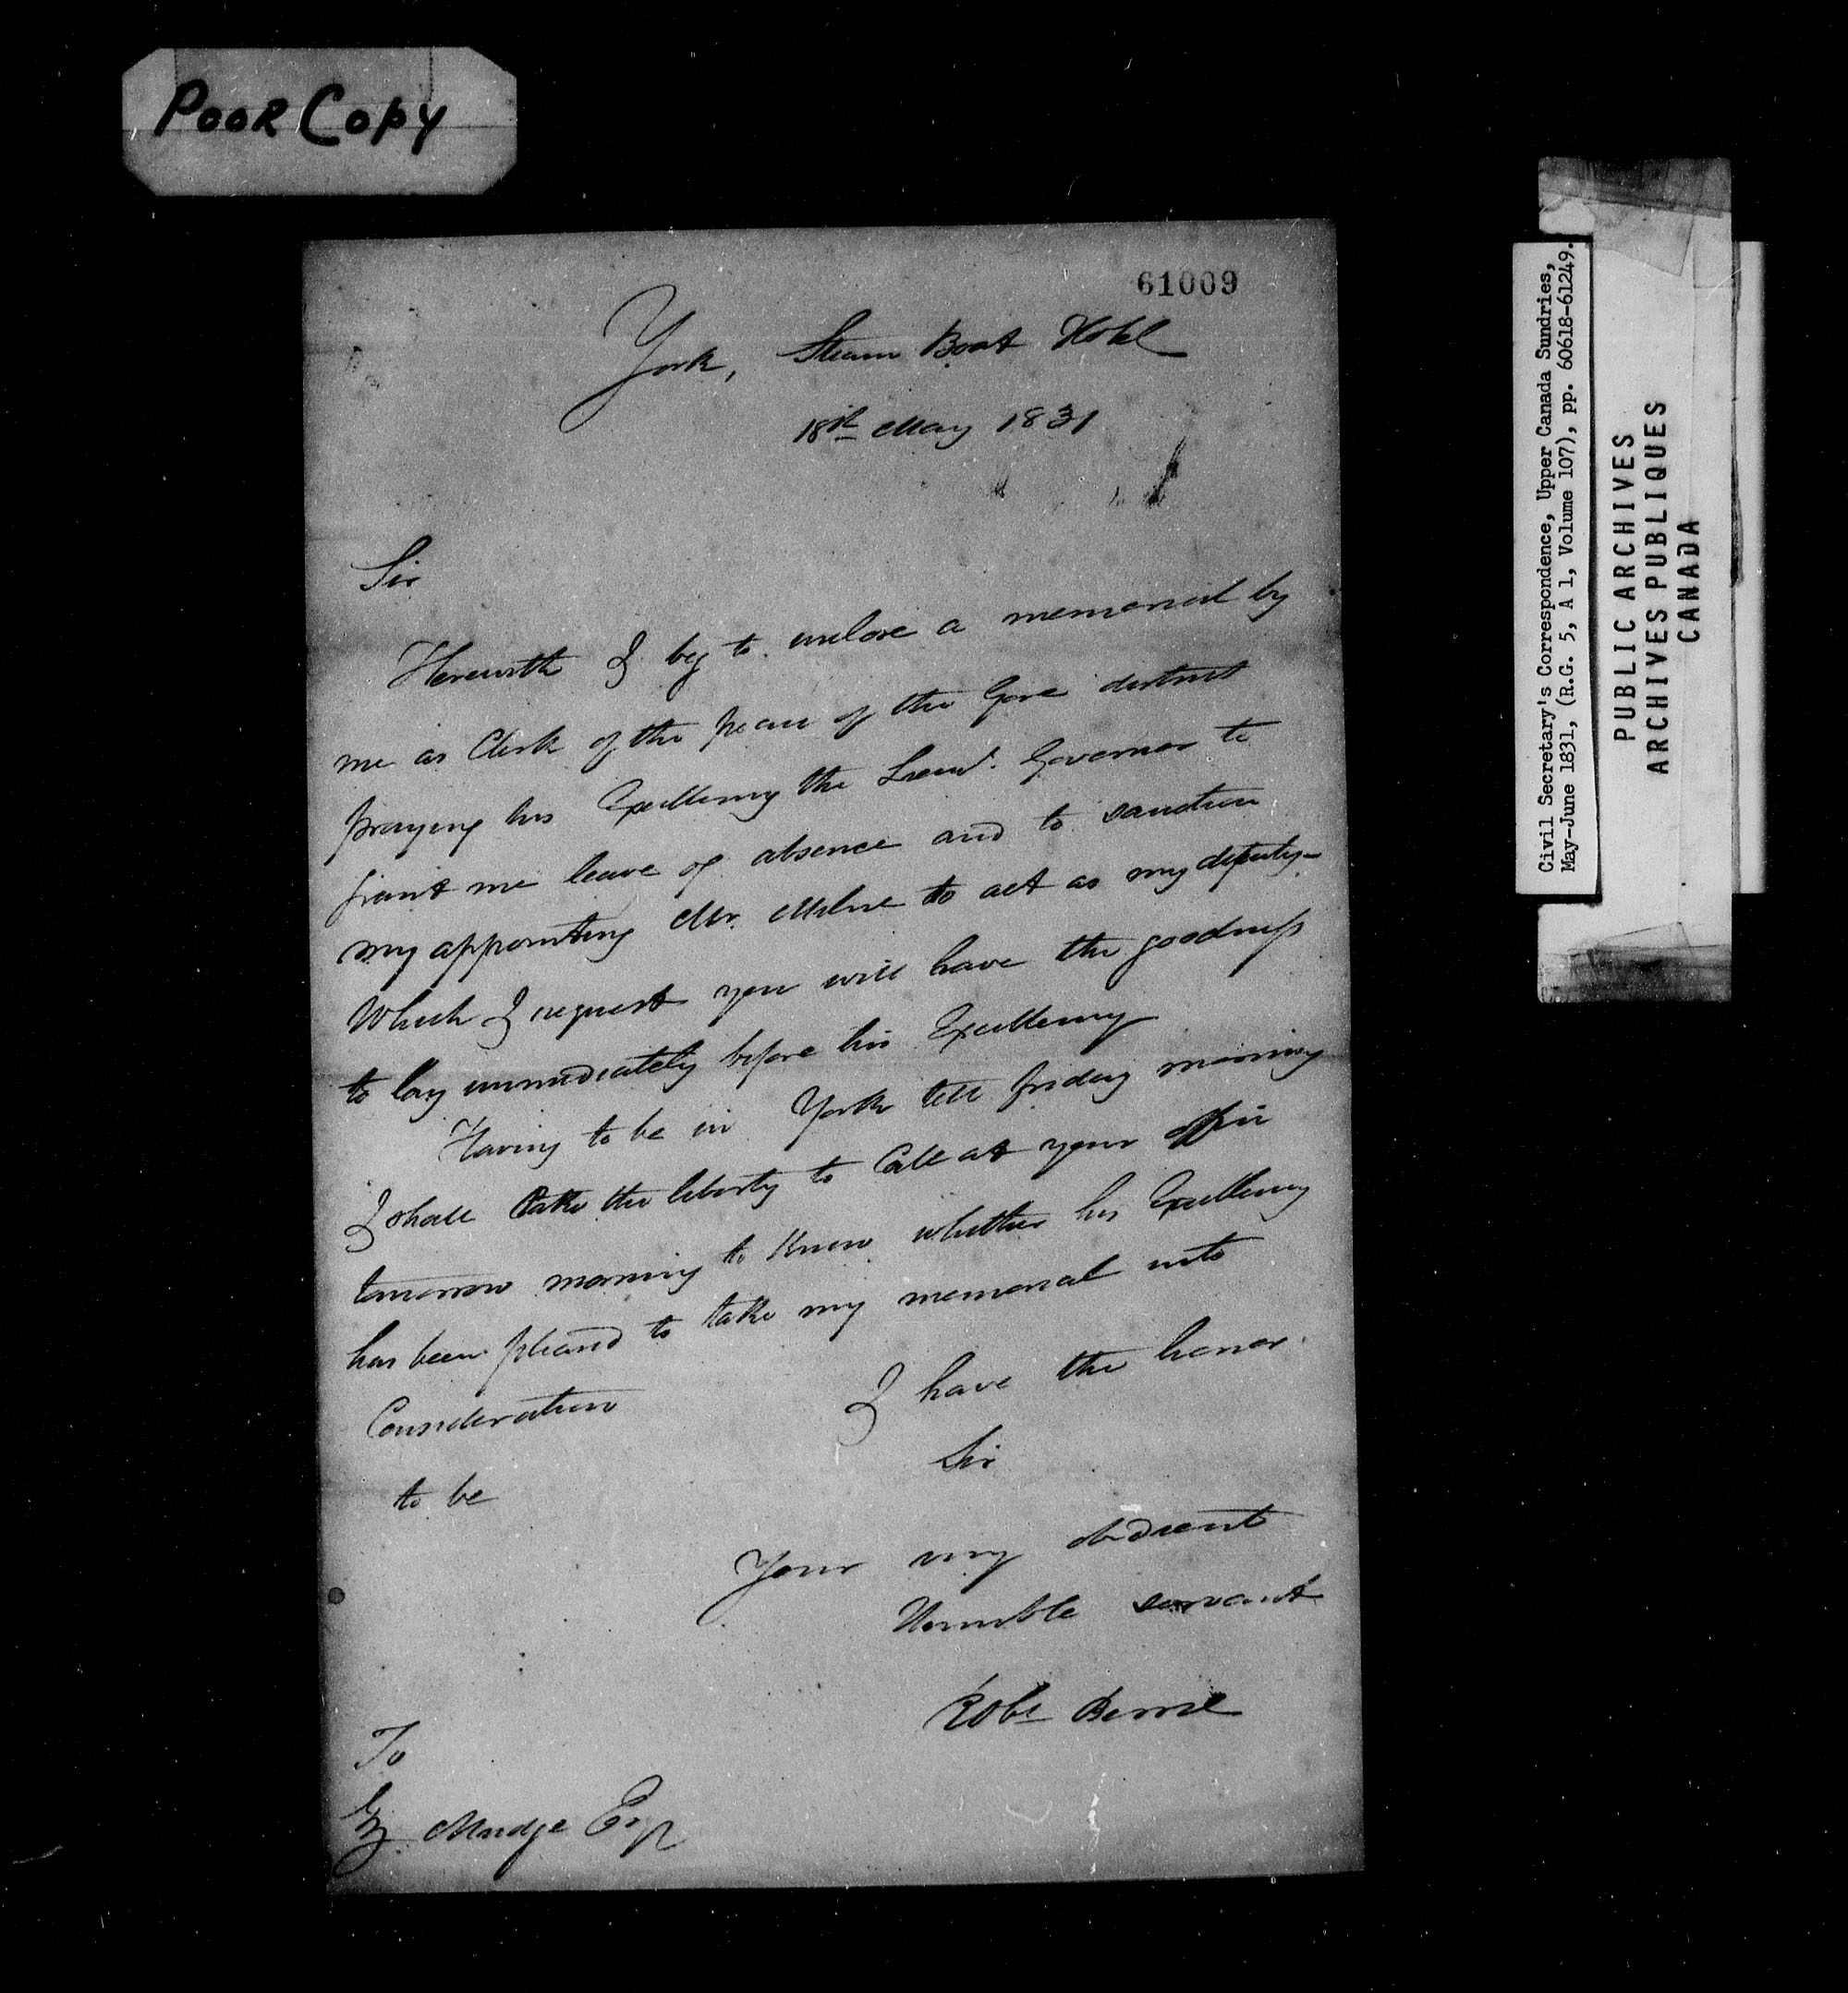 POOR COPY
61009
York, Steam Boat Hotel
18th May 1831
Sir
Herewith I beg to inclose a memorial by
me as Clerk of the peace of the Gore district
praying his Excellency the Lieut. Governor to
grant me leave of absence and to sanction
my appointing Mr. Milne to act as my deputy—
Which I request you will have the goodness
to lay immediately before his Excellency
Having to be in York till friday morning
I shall take the liberty to Call at your office
tomorrow morning to Know whether his Excellency
has been pleased to take my memorial into
Consideration
I have the honor
to be
Sir
Your very obedient
Humble servant
Robt Berrie
To
Mudge Esqr
Civil Secretary's Correspondence, Upper Canada Sundries,
May-June 1831, (R.G. 5, A 1, Volume 107), pp. 60618-61249.
PUBLIC ARCHIVES
ARCHIVES PUBLIQUES
CANADA